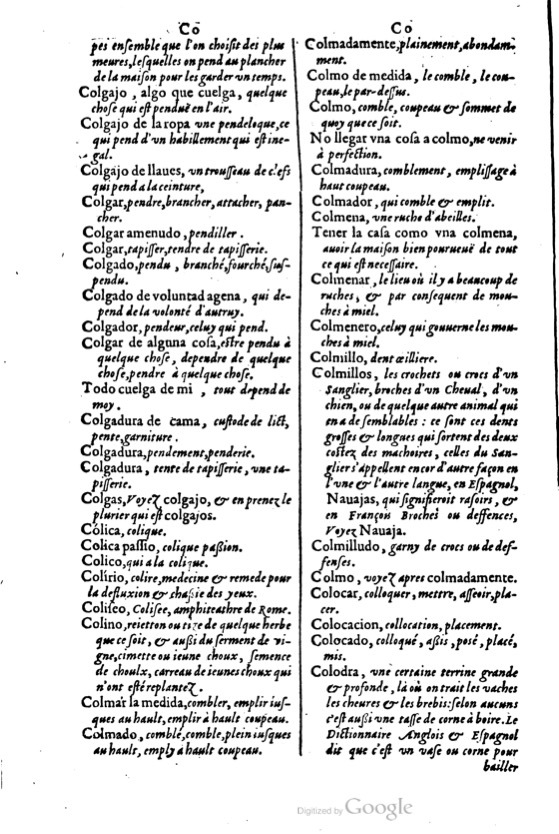 Co
pes ensemble que l'on choisit des plus
meures, lesquelles on pend au plancher
de la maison pour les garder un temps.
Colgajo, algo que cuelga, quelque
chose qui est penduë en l'air.
Colgajo de la ropa vne pendeloque, ce
qui pend d'un habillement qui est ine-
gal.
Colgajo de llaues, un trousseau de clefs
qui pend a la ceinture,
Colgar, pendre, brancher, attacher, pan-
cher.
Colgar amenudo, pendiller.
Colgar, tapisser, tendre de tapisserie.
Colgado, pendu, branché, fourché, sus-
pendu.
Colgado de voluntad agena, qui de-
pend de la volonté d'autruy.
Colgador, pendeur, celuy qui pend.
Colgar de alguna cosa, estre pendu à
quelque chose, dependre de quelque
chose, pendre à quelque chose.
Todo cuelga de mi, tout depend de
moy.
Colgadura de cama, custode de lict,
pente, garniture.
Colgadura, pendement, penderie.
Colgadura, tente de tapisserie, vne ta-
pisserie.
Colgas, Voyez colgajo, & en prenez le
plurier qui est colgajos.
Cólica, colique.
Colica passio, colique passion.
Colico, qui a la colique.
Colirio, colire, medecine & remede pour
la defluxion & chassie des yeux.
Coliseo, Colisee, amphiteathre de Rome.
Colino, reietton ou tige de quelque herbe
que ce soit, & aussi du serment de vi-
gne, cimette ou ieune choux, semence
de choulx, carreau de ieunes choux qui
n'ont esté replantez.
Colmar la medida, combler, emplir ius-
ques au hault, emplir à hault coupeau.
Colmado, comblé, comble, plein iusques
au hault, emply a hault coupeau.
Co
Colmadamente, plainement, abondam-
ment.
Colmo de medida, le comble, le cou-
peau, le par-dessus.
Colmo, comble, coupeau & sommet de
quoy que ce soit.
No llegar vna cosa a colmo, ne venir
à perfection.
Colmadura, comblement, emplissage à
haut coupeau.
Colmador, qui comble & emplit.
Colmena, vne ruche d'abeilles.
Tener la casa como vna colmena,
auoir la maison bien pourueuë de tout
ce qui est necessaire.
Colmenar, le lieu où il y a beaucoup de
ruches, & par consequent de mou-
ches à miel.
Colmenero, celuy qui gouuerne les mou-
ches à miel.
Colmillo, dent œilliere.
Colmillos, les crochets ou crocs d'un
Sanglier, broches d'un Cheual, d'un
chien, ou de quelque autre animal qui
en a de semblables : ce sont ces dents
grosses & longues qui sortent des deux
costez des machoires, celles du San-
glier s'appellent encor d'autre façon en
l'vne & l'autre langue, en Espagnol,
Nauajas, qui signifieroit rasoirs, &
en François Broches ou deffences,
Voyez Nauaja.
Colmilludo, garny de crocs ou de def-
fenses.
Colmo, voyez apres colmadamente.
Colocar, colloquer, mettre, asseoir, pla-
cer.
Colocacion, collocation, placement.
Colocado, colloqué, assis, posé, placé,
mis.
Colodra, vne certaine terrine grande
& profonde, là où on trait les vaches
les cheures & les brebis: selon aucuns
c'est aussi une tasse de corne à boire. Le
Dictionnaire Anglois & Espagnol
dit que c'est un vase ou corne pour
bailler
Digitized by Google